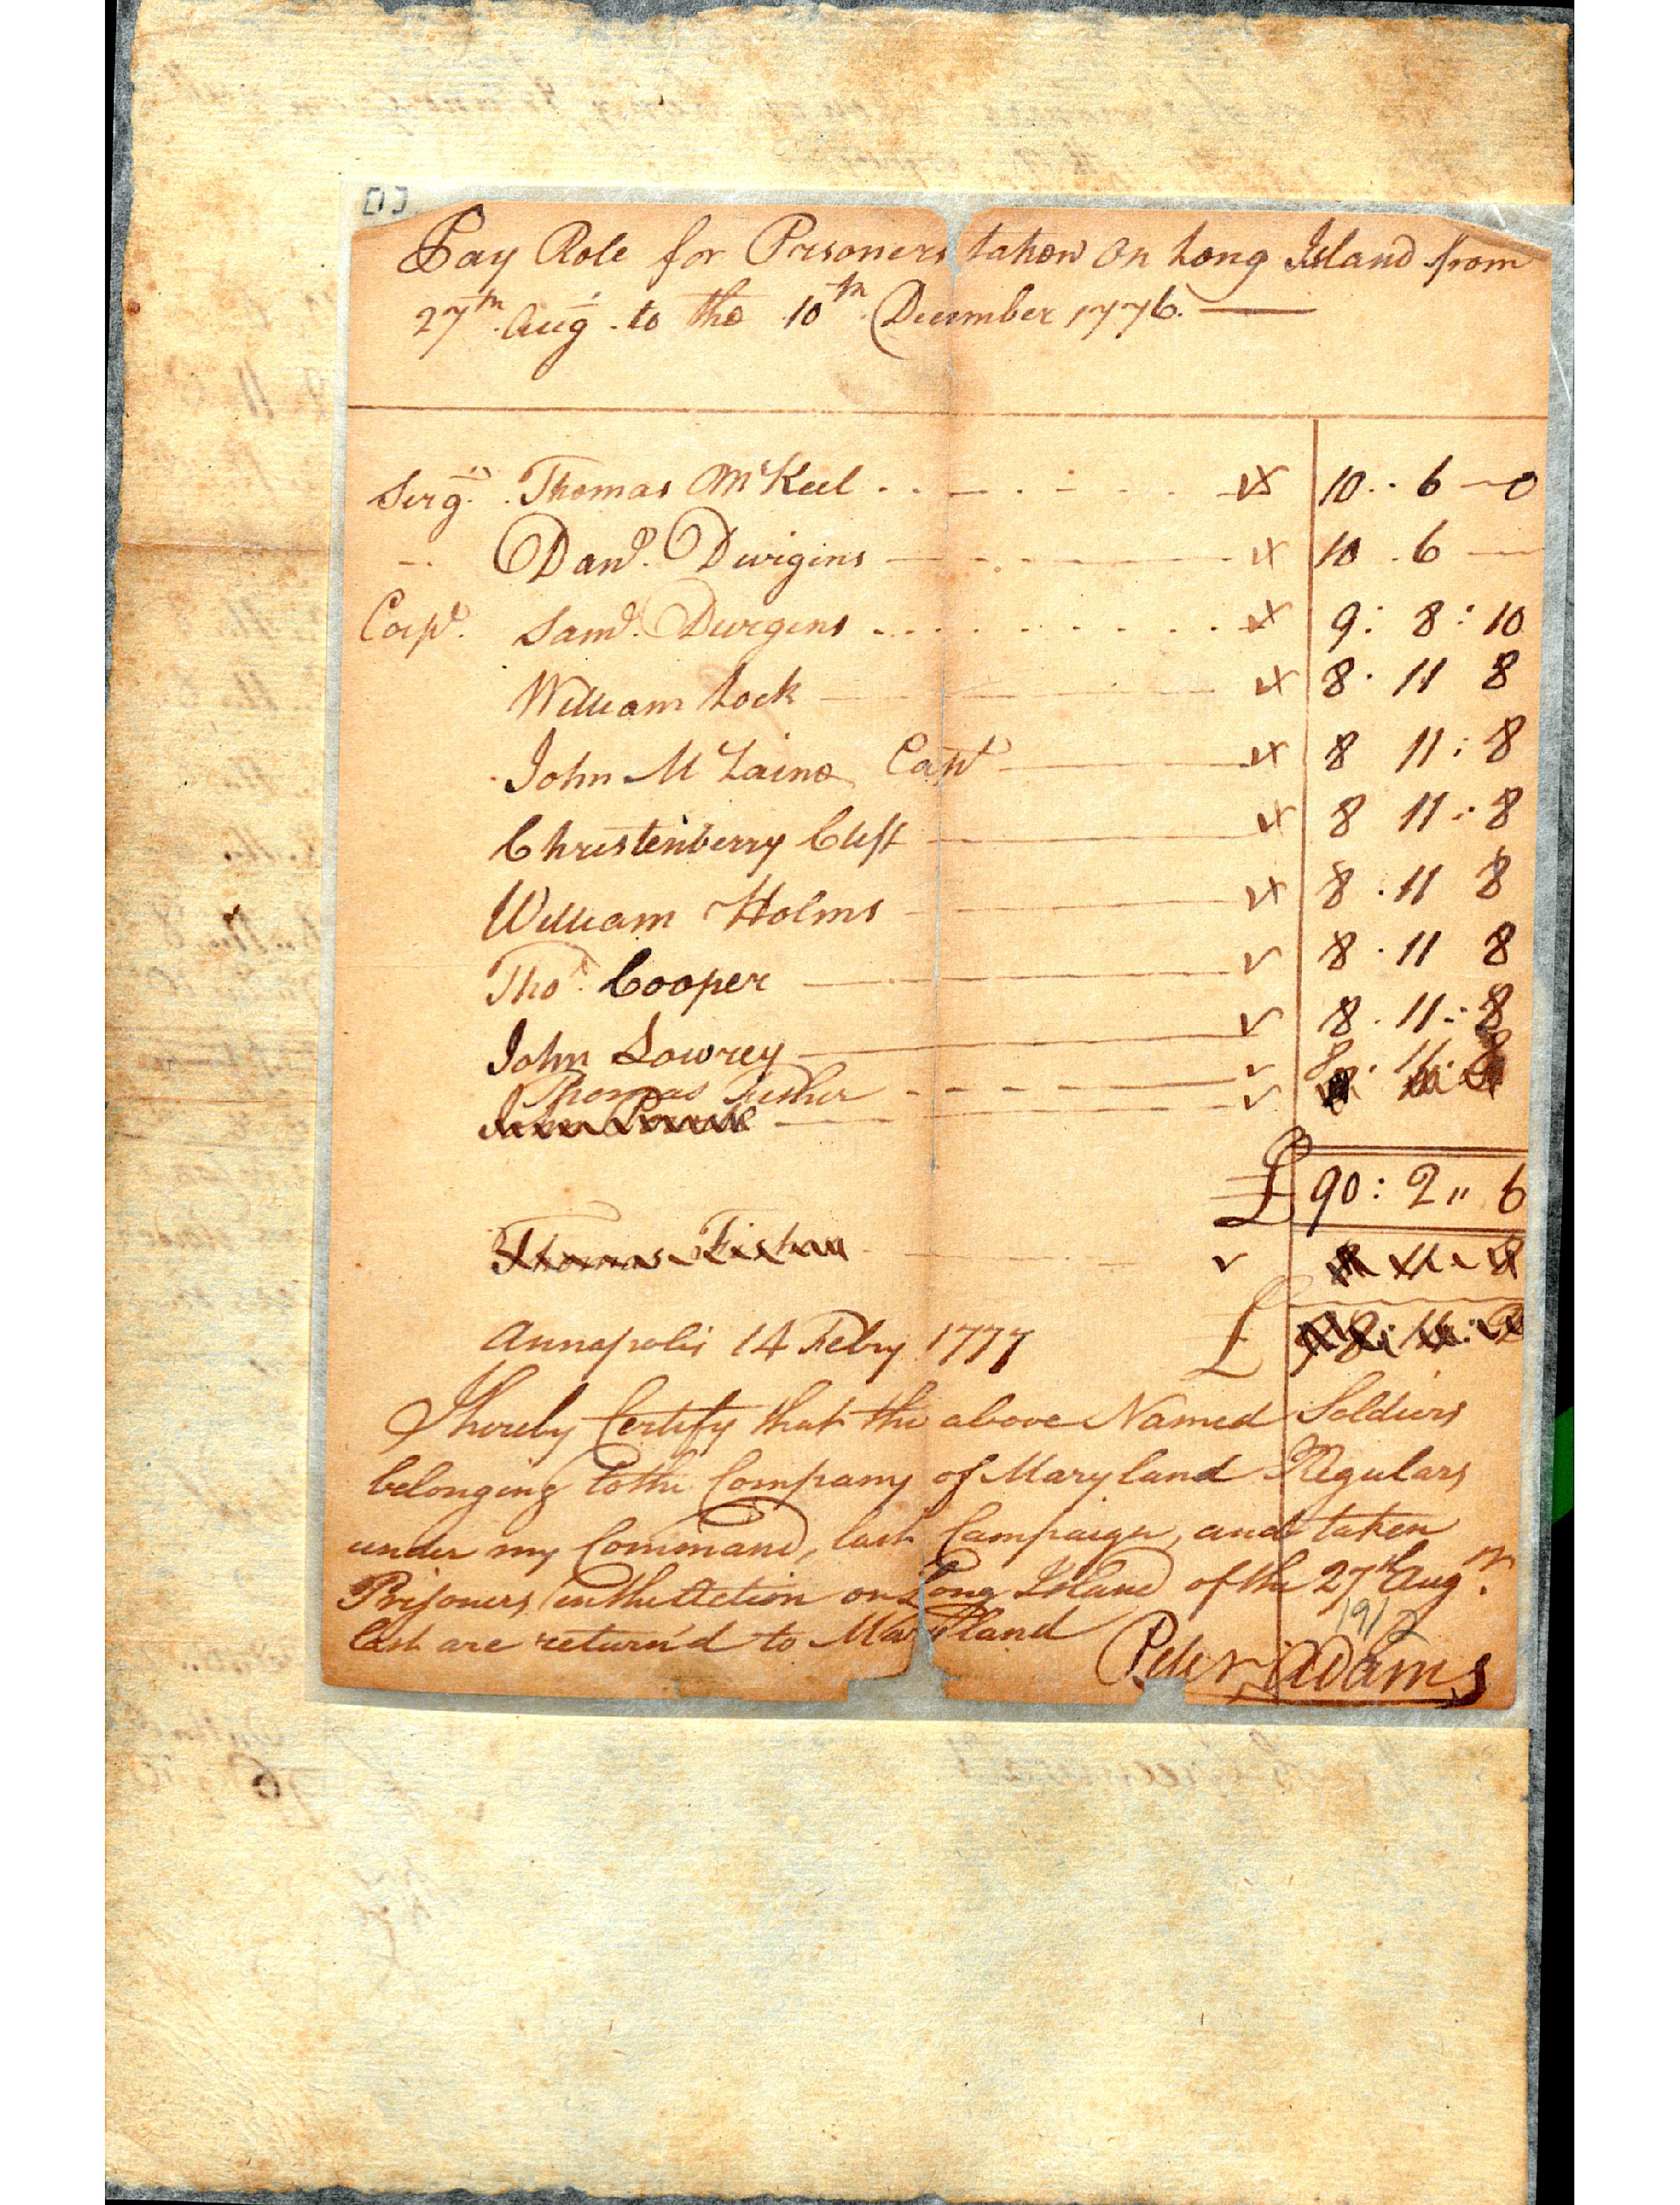 Pay Role for Prisoners taken on Long Island from
27th. Augt. to the 10th. December 1776.
Sergt. Thomas McKeel 10 .. 6 — 0
Danl. Dwigens 10 . 6 —
Corpl. Saml. Dwigens 9 : 8 : 10
William Lock 8 . 11 8
John McLaine Capt 8 11 : 8
Christenberry Clift 8 11 : 8
William Holms 8 . 11 8
Thos. Cooper 8 . 11 8
John Lowrey 8 . 11 : 8
Thomas Fisher 8 . 11 . 8
£ 90 : 2 " 6
Thomas Fisher 8 11 . 8
Annapolis 14 Febry 1777 £
I hereby Certify that the above Named Soldiers
belonging to the Company of Maryland Regulars
under my Command, last Campaign, and taken
Prisoners, in the Action on Long Island of the 27th Augt.
last are return'd to Maryland
1912
Peter Adams